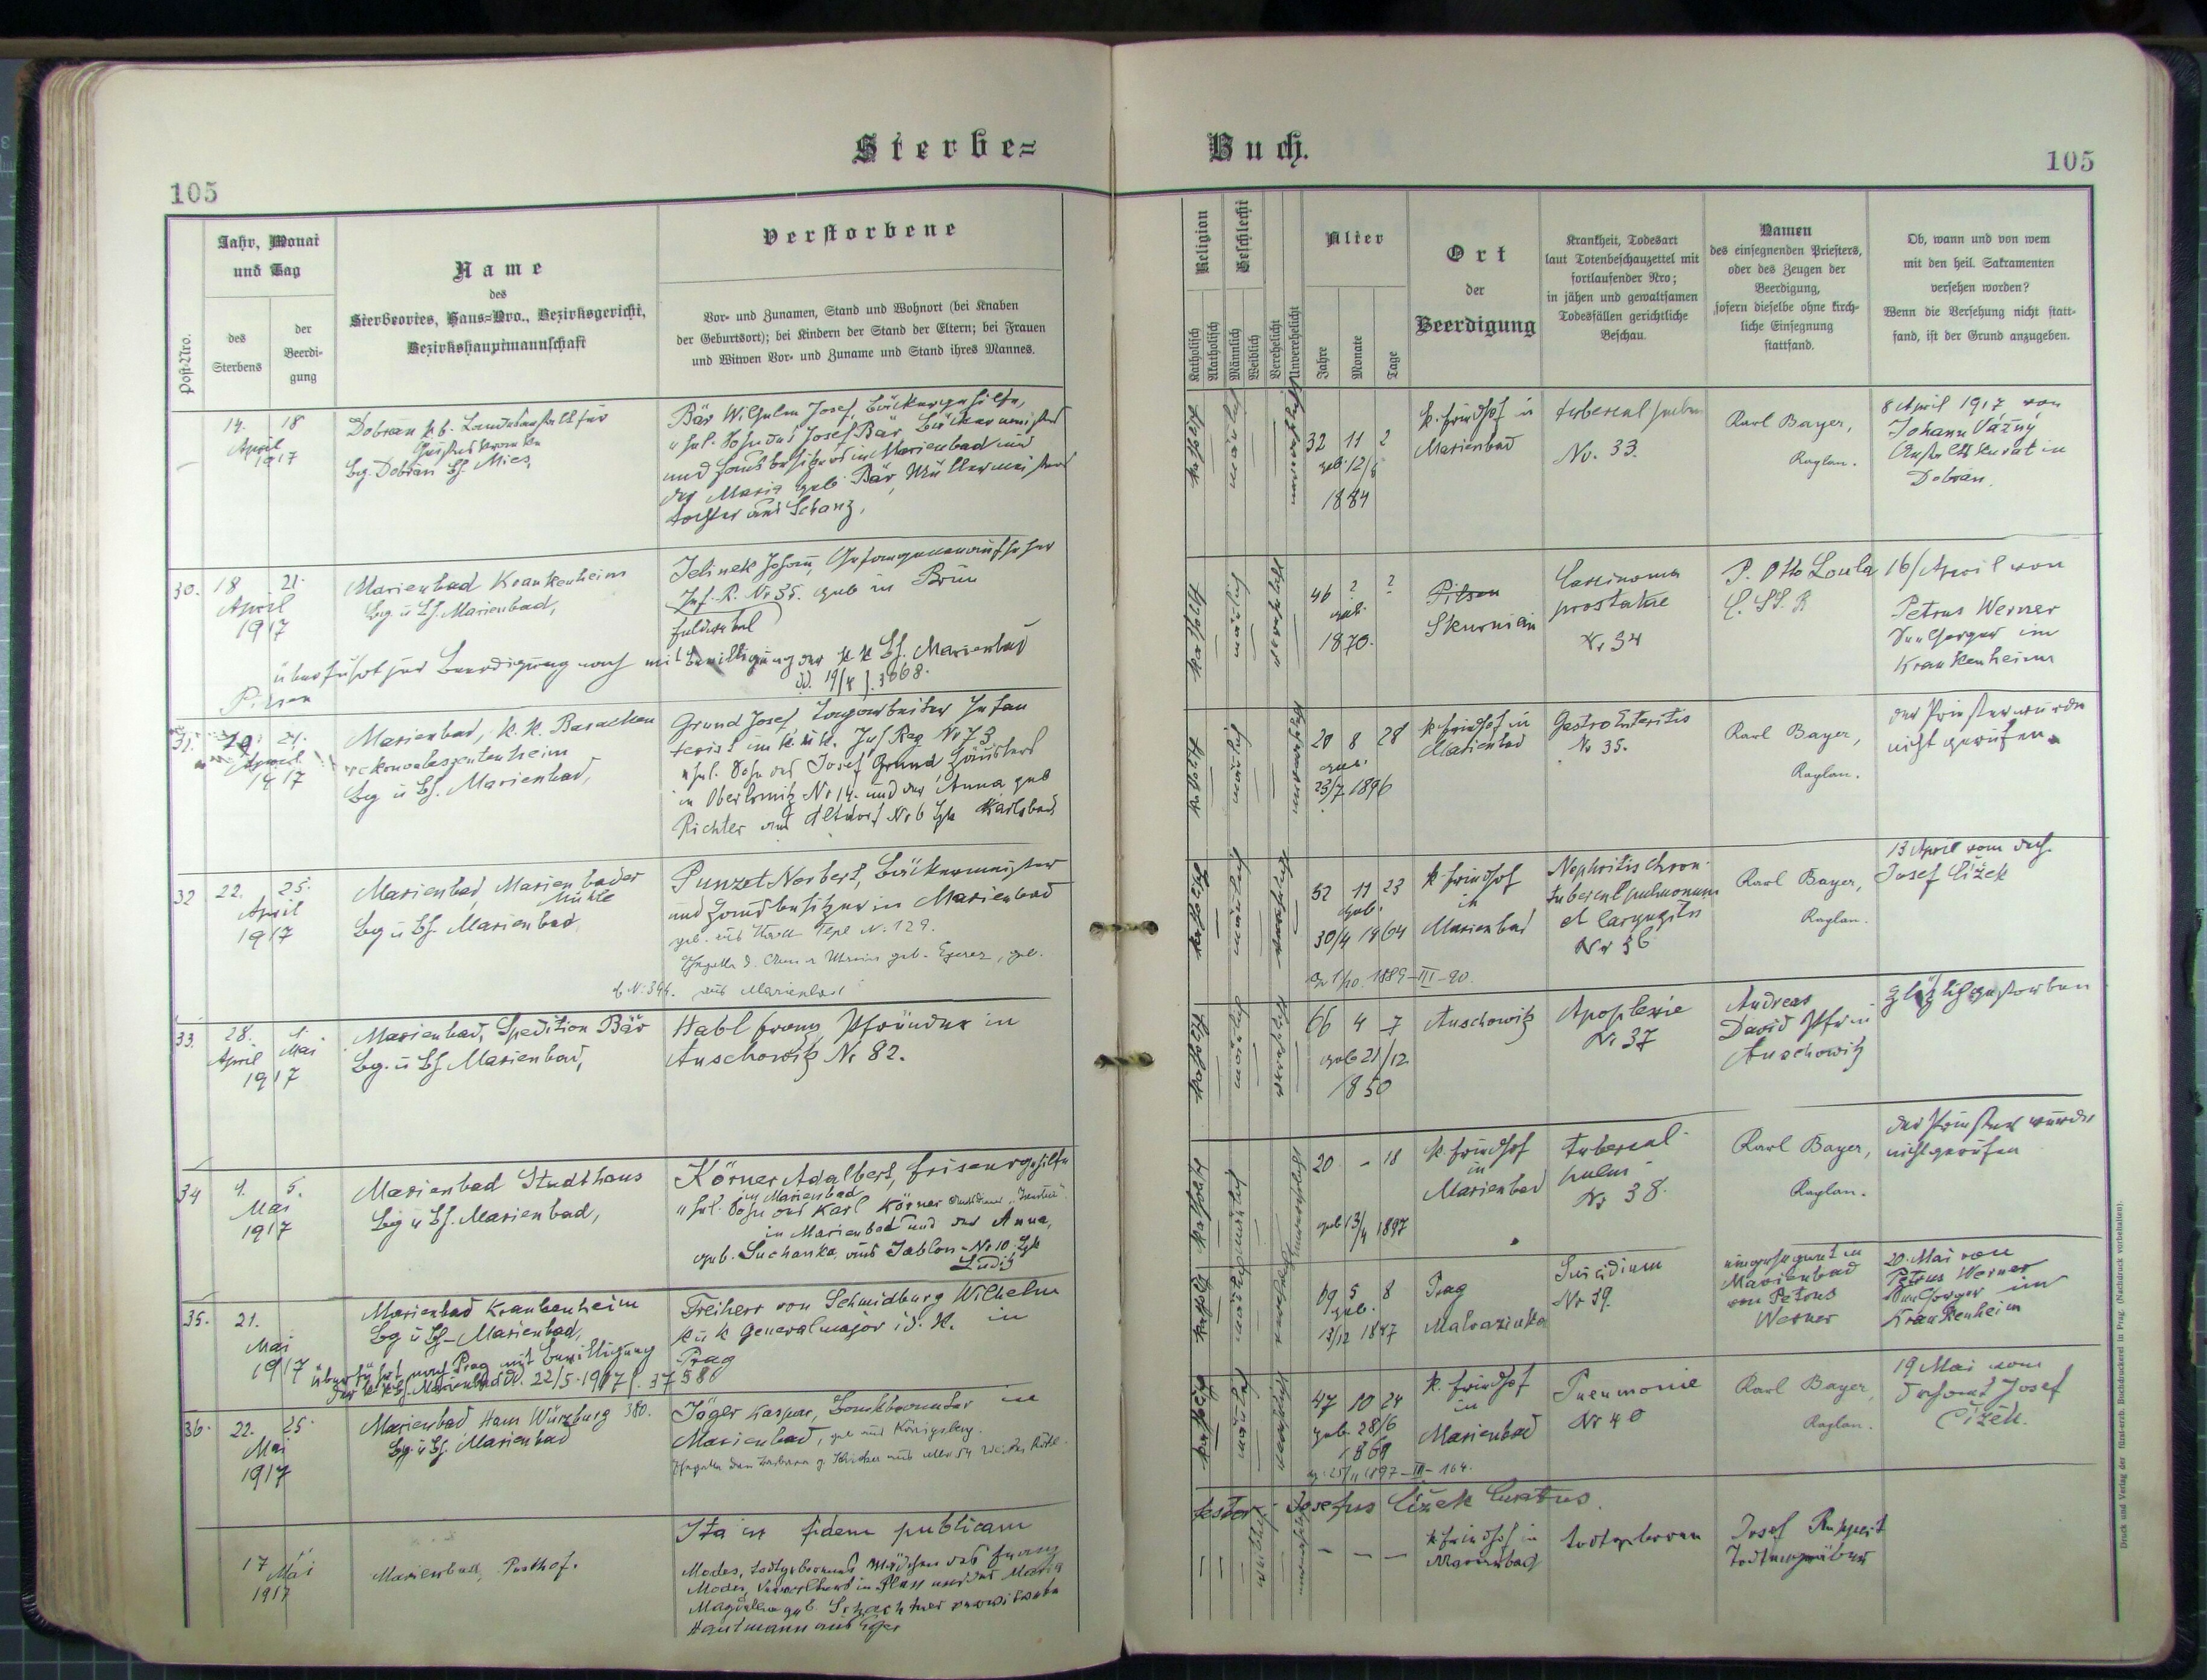 Sterbe=
Buch.
105
105
Post-Nro.
Jahr, Monat
und Tag
des
Sterbens
der
Beerdi-
gung
Name
des
Sterbeortes, Haus=Nro., Bezirksgericht,
Bezirkshauptmannschaft
Verstorbene
Vor- und Zunamen, Stand und Wohnort (bei Knaben
der Geburtsort); bei Kindern der Stand der Eltern; bei Frauen
und Witwen Vor- und Zuname und Stand ihres Mannes.
Religion
Katholisch
Akatholisch
Geschlecht
Männlich
Weiblich
Verehelicht
Unverehelicht
Alter
Jahre
Monate
Tage
Ort
der
Beerdigung
Krankheit, Todesart
laut Totenbeschauzettel mit
fortlaufender Nro;
in jähen und gewaltsamen
Todesfällen gerichtliche
Beschau.
Namen
des einsegnenden Priesters,
oder des Zeugen der
Beerdigung,
sofern dieselbe ohne kirch-
liche Einsegnung
stattfand.
Ob, wann und von wem
mit den heil. Sakramenten
versehen worden?
Wenn die Versehung nicht statt-
fand, ist der Grund anzugeben.
14. 18
April
1917
Dobřan k. b. Landesanstalt für
Geisteskranken
Bg. Dobřan Bh. Mies,
Bär Wilhelm Josef, Bäckergehilfe,
ehl. Sohn des Josef Bär Bäckermeisters
und Hausbesitzers in Marienbad und
der Maria geb. Bär, Müllermeisters
tochter aus Schanz.
katholisch
männlich
32 11 2
geb. 12/5
1884
k. Friedhof in
Marienbad
tubercul pulm
No. 33.
Karl Bayer,
Kaplan.
8 April 1917 von
Johann Vážný
Anstaltskurat in
Dobřan.
30. 18 21.
April
1917
Marienbad Krankenheim
Bg u Bh. Marienbad,
Jelinek Johann, Gefangenenaufseher
Inf. R. No 35. geb in Brünn
Feldwebel
überführt zur Beerdigung nach mit Bewilligung der kk Bh. Marienbad
Pilsen dd. 19/4 J. 3668.
katholisch
männlich
46 ? ?
geb.
1870.
Pilsen
Skurnian
Carcinoma
prostatae
Nr 34
P. Otto Loula
C. SS. R
16/April von
Petrus Werner
Seelsorger im
Krankenheim
31. 20. 21.
April
1917
Marienbad, k. k. Baracken
rekonvaleszentenheim
Bg u Bh. Marienbad,
Grund Josef Tagarbeiter Infan
terist im k. u k. Inf Reg No 73
ehl. Sohn des Josef Grund Häuslers
in Oberlomitz No 14. und der Anna geb
Richter aus Altdorf No 6 Bzk Karlsbad
katholisch
männlich
20 8 28
geb.
23/7 1896
k. Friedhof in
Marienbad
Gastro Enteritis
No 35.
Karl Bayer,
Kaplan.
der Priester wurde
nicht gerufen.
32 22. 25.
April
1917
Marienbad, Marienbader
Mühle
Bg u Bh. Marienbad,
Punzet Norbert, Bäckermeister
und Hausbesitzer in Marienbad
geb. aus Tepl N. 129.
N. 394. aus Marienbad
katholisch
männlich
52 11 23
geb.
30/4 1864
1/10. 1889-III-20.
k. Friedhof
in
Marienbad
Nephritis chron.
tubercul pulmonum
et laryngitis
Nr 36
Karl Bayer,
Kaplan.
13 April vom Dech.
Josef Čížek
33. 28. 1.
April Mai
1917
Marienbad, Spedition Bär
Bg. u Bh. Marienbad,
Habl Franz Pfründner in
Auschowitz No 82.
katholisch
männlich
66 4 7
geb 21/12
1850
Auschowitz
Apoplexie
Nr 37
Andreas
David Pfr in
Auschowitz
plötzlich gestorben
34 4. 5.
Mai
1917
Marienbad Stadthaus
Bg u Bh. Marienbad,
Körner Adalbert, Friseurgehilfe
in Marienbad
ehl. Sohn des Karl Körner
in Marienbad und der Anna,
geb. Suchanka, aus Jablon - No 10. Bzk
Luditz
katholisch
männlich
20 - 18
geb 13/4 1897
k. Friedhof
in
Marienbad
Tubercul-
pulm
Nr 38.
Karl Bayer,
Kaplan.
der Priester wurde
nicht gerufen
35. 21.
Mai
1917
Marienbad Krankenheim
Bg u Bh- Marienbad,
überführt nach Prag mit Bewilligung
der k. k. Bh. Marienbad dd. 22/5. 1917 J. 3758
Freiherr von Schmidburg Wilhelm
k u k Generalmajor i. R. in
Prag
katholisch
männlich
69 5 8
geb.
13/12 1847
Prag
Malvazinka
Suicidium
Nr 39.
eingesegnet in
Marienbad
von Petrus
Werner
20. Mai von
Petrus Werner
Seelsorger im
Krankenheim
36. 22. 25.
Mai
1917
Marienbad Haus Würzburg 380.
Bg. u Bh. Marienbad
Jäger Kaspar, Bankbeamter in
Marienbad, geb aus Königsberg.
katholisch
männlich
47 10 24
geb. 28/6
1869
25/11 1897-III-164.
k. Friedhof
in
Marienbad
Pneumonie
Nr 40
Karl Bayer,
Kaplan.
19 Mai vom
Dechant Josef
Čížek.
Ita in fidem publicam
testor Josefus Čížek Curatus.
17 Mai
1917
Marienbad, Posthof.
Modes, todtgeborenes Mädchen des Franz
Modes, in Plan und der Maria
Magdalena geb. Schachtner verwitwete
Hantmann aus Eger
- - -
k. Friedhof in
Marienbad
todtgeboren
Josef Ruppert
Todtengräber
Druck und Verlag der fürst-erzb. Buchdruckerei in Prag. (Nachdruck vorbehalten).